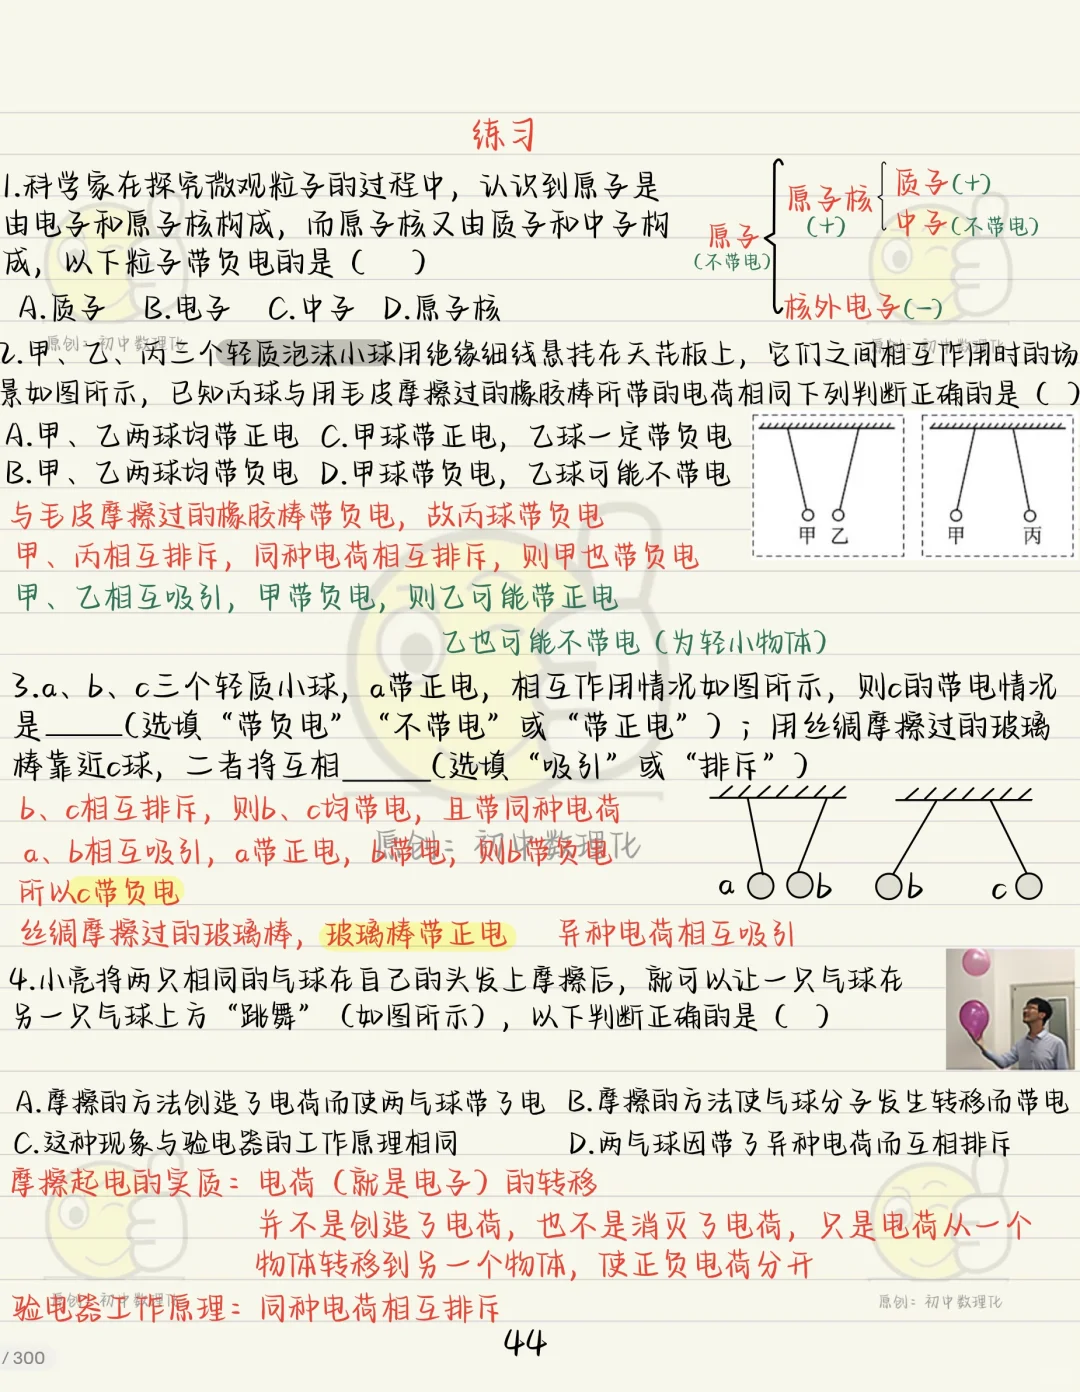 练习
1.科学家在探究微观粒子的过程中，认识到原子是
由电子和原子核构成，而原子核又由质子和中子构
成，以下粒子带负电的是（　）
A.质子 B.电子 C.中子 D.原子核
原子
(不带电)
原子核
(+)
质子(+)
中子(不带电)
核外电子(-)
2.甲、乙、丙三个轻质泡沫小球用绝缘细线悬挂在天花板上，它们之间相互作用时的场
景如图所示，已知丙球与用毛皮摩擦过的橡胶棒所带的电荷相同下列判断正确的是（ ）
A.甲、乙两球均带正电 C.甲球带正电，乙球一定带负电
B.甲、乙两球均带负电 D.甲球带负电，乙球可能不带电
甲 乙
甲 丙
与毛皮摩擦过的橡胶棒带负电，故丙球带负电
甲、丙相互排斥，同种电荷相互排斥，则甲也带负电
甲、乙相互吸引，甲带负电，则乙可能带正电
乙也可能不带电（为轻小物体）
3.a、b、c三个轻质小球，a带正电，相互作用情况如图所示，则c的带电情况
是_____(选填“带负电”“不带电”或“带正电”）；用丝绸摩擦过的玻璃
棒靠近c球，二者将互相_____(选填“吸引”或“排斥”）
b、c相互排斥，则b、c均带电，且带同种电荷
a、b相互吸引，a带正电，b带电，则b带负电
所以c带负电
丝绸摩擦过的玻璃棒，玻璃棒带正电 异种电荷相互吸引
a b b c
4.小亮将两只相同的气球在自己的头发上摩擦后，就可以让一只气球在
另一只气球上方“跳舞”（如图所示），以下判断正确的是（ ）
A.摩擦的方法创造了电荷而使两气球带了电 B.摩擦的方法使气球分子发生转移而带电
C.这种现象与验电器的工作原理相同 D.两气球因带了异种电荷而互相排斥
摩擦起电的实质：电荷（就是电子）的转移
并不是创造了电荷，也不是消灭了电荷，只是电荷从一个
物体转移到另一个物体，使正负电荷分开
验电器工作原理：同种电荷相互排斥
44
/ 300
原创：初中数理化
原创：初中数理化
原创：初中数理化
原创：初中数理化
原创：初中数理化